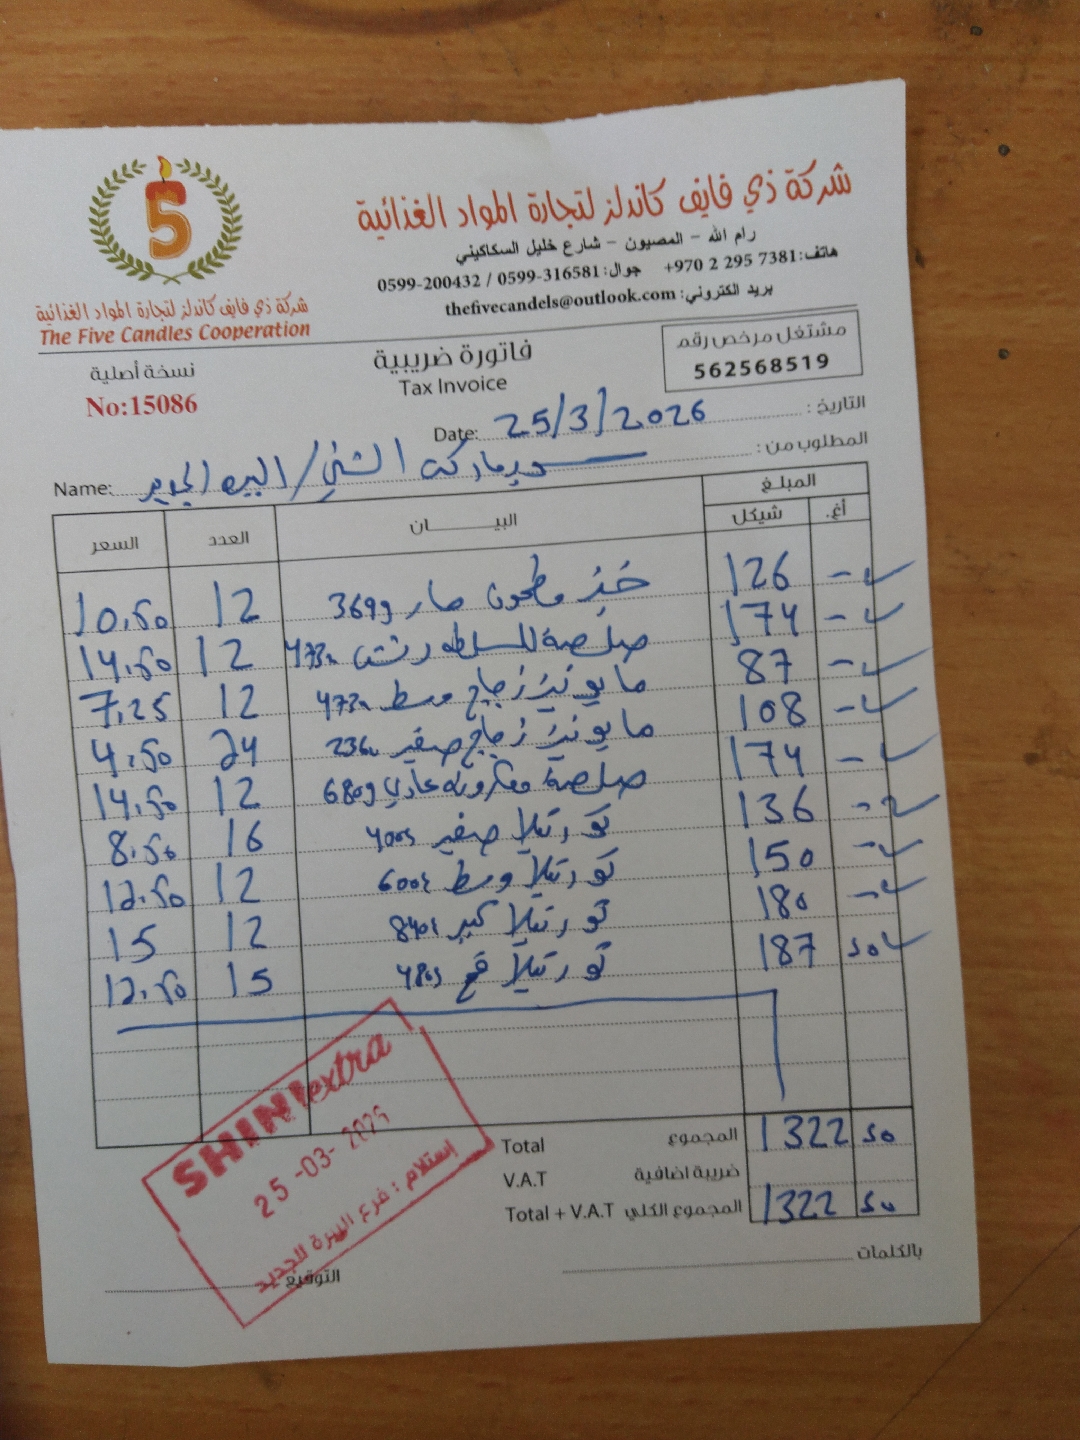 شركة ذي فايف كاندلز لتجارة المواد الغذائية
رام الله - المصيون - شارع خليل السكاكيني
هاتف: +970 2 295 7381 جوال: 0599-316581 / 0599-200432
بريد الكتروني: thefivecandels@outlook.com
5
شركة ذي فايف كاندلز لتجارة المواد الغذائية
The Five Candles Cooperation
مشتغل مرخص رقم
562568519
فاتورة ضريبية
Tax Invoice
نسخة أصلية
No:15086
التاريخ : 25/3/2026 Date:
المطلوب من : سوبرماركت الشني / البيره الجديد Name:
المبلغ
أغ. شيكل البيـــــان العدد السعر
- 126 خبز مطحون حار 369g 12 10.50
- 174 صلصة للسلطه رنش 473 12 14.50
- 87 مايونيز زجاج وسط 473 12 7.25
- 108 مايونيز زجاج صغير 236 24 4.50
- 174 صلصة معكرونه عادي 680g 12 14.50
- 136 تورتيلا صغير 400g 16 8.50
- 150 تورتيلا وسط 600g 12 12.50
- 180 تورتيلا كبير 840g 12 15
50 187 تورتيلا قمح 480g 15 12.50
Total المجموع 1322 50
V.A.T ضريبة اضافية
Total + V.A.T المجموع الكلي 1322 50
بالكلمات
التوقيع
SHINI extra
25-03-2026
إستلام : فرع البيرة الجديد